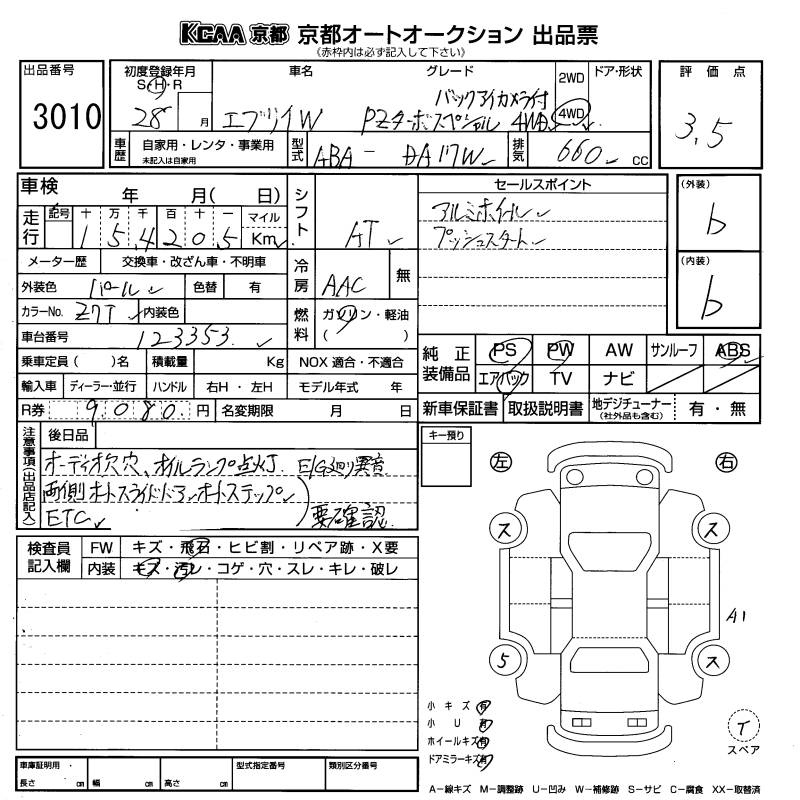 KCAA 京都 京都オートオークション 出品票
《赤枠内は必ず記入して下さい》
出品番号
3010
初度登録年月
S・H・R
28 月
車名
エブリイW
グレード
バックアイカメラ付
PZターボスペシャル 4WD
2WD
4WD
ドア・形状
評価点
3.5
車歴
自家用・レンタ・事業用
未記入は自家用
型式
ABA- DA17W
排気
660 CC
車検 年 月( 日)
走行
記号 十 万 千 百 十 一 マイル
1 5,4 2 0.5 Km
メーター歴 交換車・改ざん車・不明車
外装色 パール 色替 有
カラーNo. Z7T 内装色
車台番号 123353
乗車定員( )名 積載量 Kg NOX 適合・不適合
輸入車 ディーラー・並行 ハンドル 右H・左H モデル年式 年
R券 9080 円 名変期限 月 日
シフト AT
冷房 AAC 無
燃料 ガソリン・軽油
( )
セールスポイント
アルミホイール
プッシュスタート
(外装)
b
(内装)
b
純正装備品
PS PW AW サンルーフ ABS
エアバック TV ナビ
新車保証書 取扱説明書 地デジチューナー (社外品も含む) 有・無
注意事項(出品店記入)
後日品
オーディオ欠穴、オイルランプ点灯、E/G廻り異音
両側オートスライドドア、オートステップ
ETC
要確認
キー預り
左
右
検査員記入欄
FW キズ・飛石・ヒビ割・リペア跡・X要
内装 キズ・汚レ・コゲ・穴・スレ・キレ・破レ
ス
ス
A1
5
ス
小キズ 有
小U 有
ホイールキズ 有
ドアミラーキズ 有
T
スペア
車庫証明用・
長さ cm 幅 cm 高さ cm
型式指定番号
類別区分番号
A−線キズ M−調整跡 U−凹み W−補修跡 S−サビ C−腐食 XX−取替済